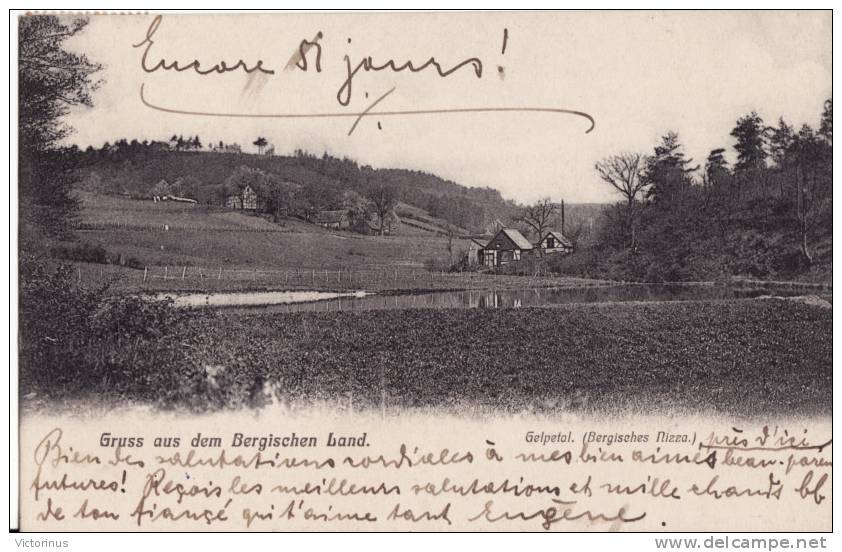 Encore 51 jours!
Gruss aus dem Bergischen Land.
Gelpetal. (Bergisches Nizza.) près d'ici
Bien des salutations cordiales à mes bien aimés beau-paren
futures! Reçois les meilleurs salutations et mille chauds bb
de ton fiançé qui t'aime tant Eugène
Victorinus
https://www.delcampe.net